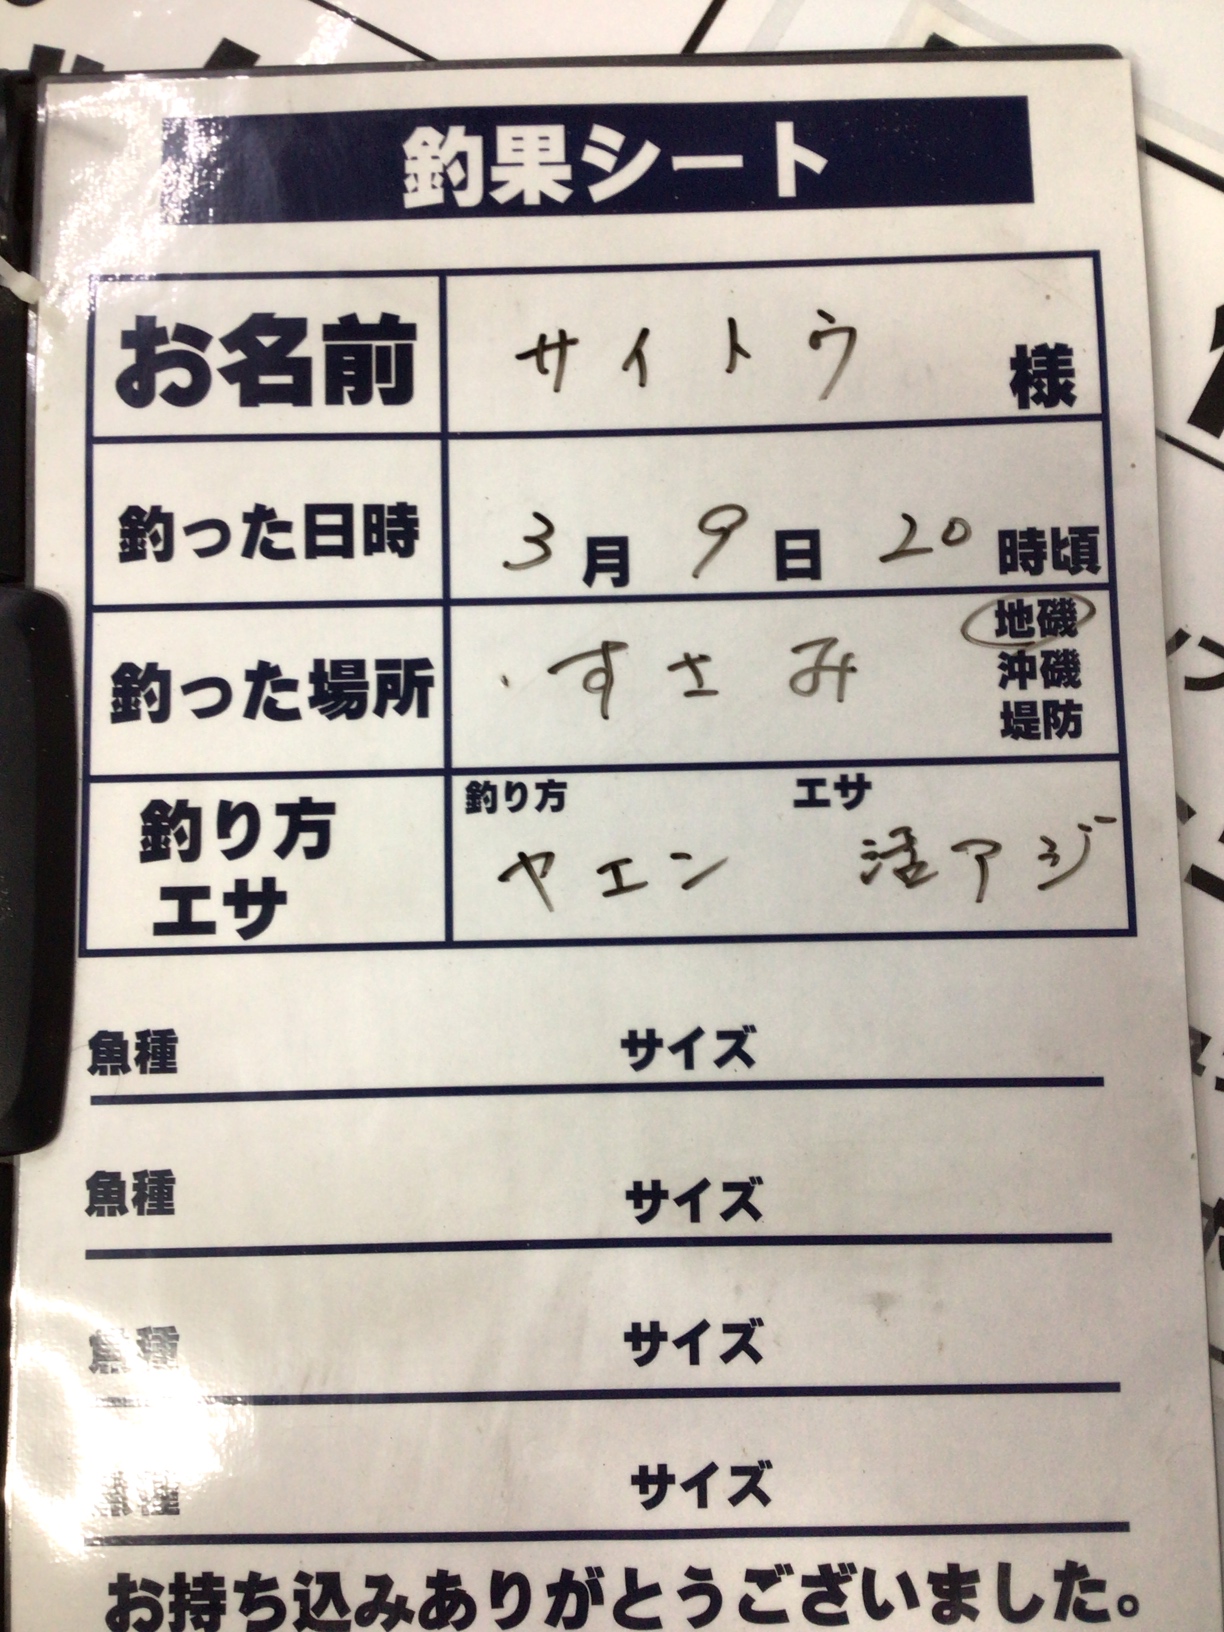 釣果シート
お名前 サイトウ 様
釣った日時 3月9日20時頃
釣った場所 すさみ 地磯
沖磯
堤防
釣り方 エサ
釣り方
エサ
ヤエン 活アジ
魚種 サイズ
魚種 サイズ
魚種 サイズ
魚種 サイズ
お持ち込みありがとうございました。